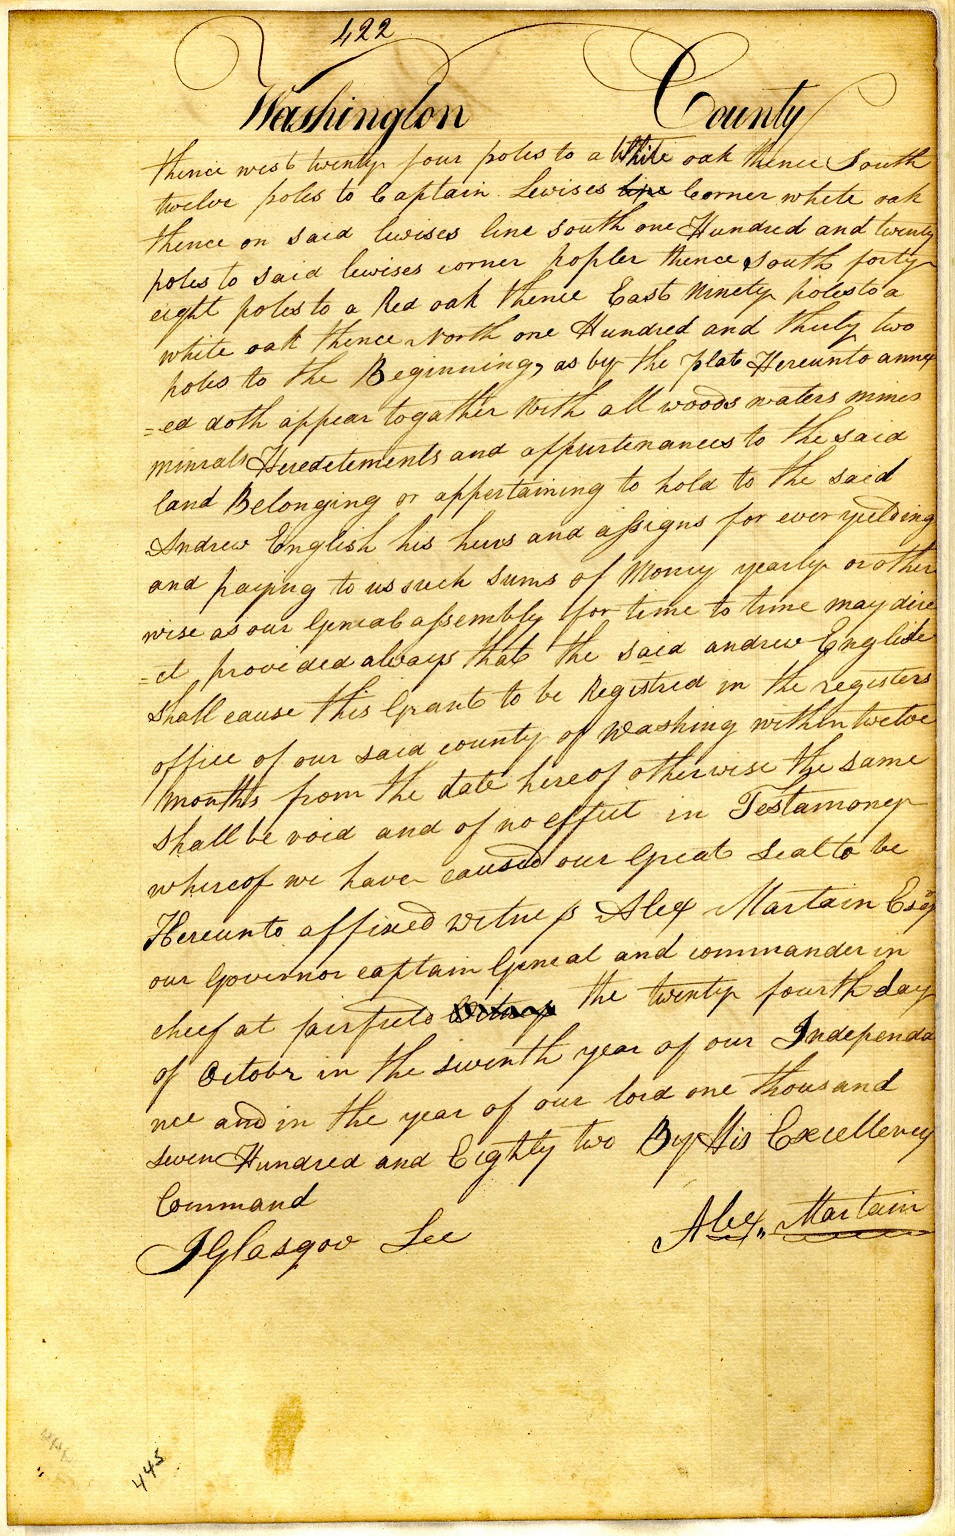 422
Washington County
thence west twenty four poles to a White oak thence South
twelve poles to Captain Lewises line Corner white oak
thence on said lewises line south one Hundred and twenty
poles to said lewises corner popler thence south forty
eight poles to a Red oak thence East Ninety poles to a
white oak thence North one Hundred and thirty two
poles to the Beginning, as by the plat Hereunto annex
=ed doth appear togather With all woods waters mines
minrals Heredetements and appurtenances to the said
land Belonging or appertaining to hold to the said
Andrew English his heirs and assigns for ever yeilding
and paying to us such sums of Money yearly or other
wise as our Genral assembly for time to time may dire
=ct provided always that the said andrew English
shall cause this Grant to be Registred in the registers
office of our said county of Washing within twelve
months from the date hereof otherwise the same
shall be void and of no effect in Testamoney
whereof we have caused our Great Seal to be
Hereunto affixed witness Alex Martain Esqr
our Governor captain Genral and commander in
cheif at fairfield the twenty fourth day
of Octobr in the seventh year of our Independa
nce and in the year of our lord one thousand
seven Hundred and Eighty two By His Excellency
Command
J Glasgow Sec Alex,, Martain
445